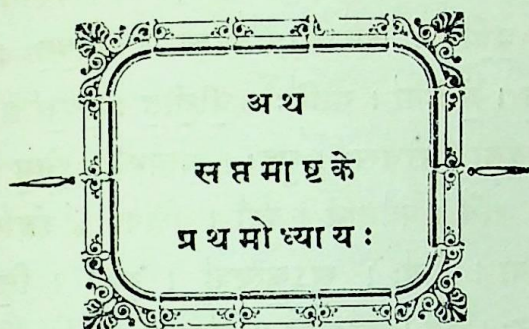 अथ
सप्तमाष्टके
प्रथमोध्यायः